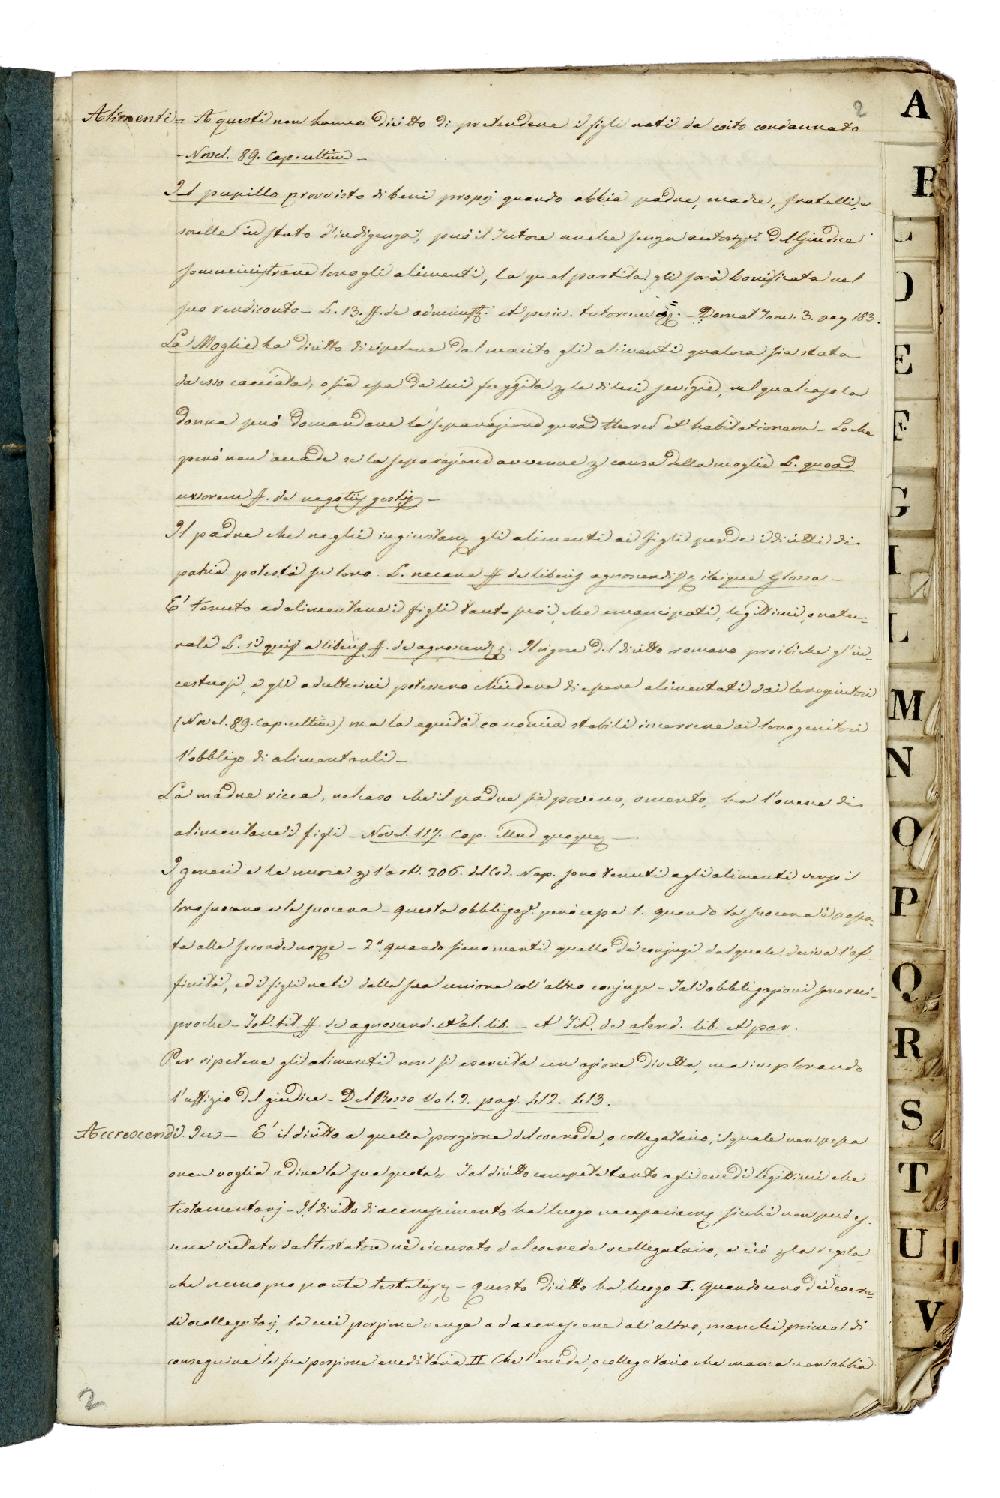 2
Alimenti = A questi non hanno diritto di pretendere i figli nati da coito condannato
- Novel. 89. Cap. ultim. -
Il pupillo provvisto di beni proprj quando abbia padre, madre, fratelli, e
sorelle in stato d'indigenza, può il Tutore anche senza autorizz.e del Giudice
somministrare loro gli alimenti, la qual partita gli sarà bonificata nel
suo rendiconto - L. 13. ff. de administ. et peric. tutorum - Domat Tom. 3. pag 183.
La Moglie ha diritto di ripetere dal marito gli alimenti qualora sia stata
da esso cacciata, o sia essa da lui fuggita p le di lui sevizie, nel qual caso la
donna può domandare la separazione quoad thorum et habitationem - Lo che
però non accade se la separazione avvenne p causa della moglie L. quod
uxorem ff. de negotijs gestis -
Il padre che neghi ingiustam. gli alimenti ai figli perde i diritti di
patria potestà su loro. L. necare ff de liberis agnoscendis, ibique Glossa -
E' tenuto ad alimentare i figli tanto che emancipati, legittimi, o natu-
rali L. si quis a liberis ff. de agnoscend. Il rigore del diritto romano proibì che gl'in-
cestuosi, e gli adulterini potessero chiedere di essere alimentati dai loro genitori
(Novel. 89. Cap. ultim) ma la equità canonica stabilì incorrere ai loro genitori
l'obbligo di alimentarli -
La madre ricca, nel caso che il padre sia povero, o morto, ha l'onere di
alimentare i figli - Novel. 117. Cap. Illud quoque -
I generi e le nuore p l'art. 206. del Cod. Nap. sono tenuti agli alimenti verso il
loro suocero e la suocera - Questa obbligaz. però cessa 1. quando la suocera è passa-
ta alle seconde nozze - 2.o quando sieno morti quello dei conjugi dal quale deriva l'af-
finità, ed i figli nati dalla sua unione coll'altro conjuge - Tali obbligazioni sono reci-
proche - Tot. tit. ff de agnoscend. et al. lib. - et Tit. de alend. lib. et par.
Per ripetere gli alimenti non si esercita un'azione diretta, ma implorando
l'uffizio del giudice - Del Rosso Vol. 2. pag. 412. 413.
Accrescendi Jus - E' il diritto a quella porzione del coerede, o collegatario, il quale non possa
o non voglia adire la sua quota = Tal diritto compete tanto agli eredi legittimi che
testamentarj - Il diritto di accrescimento ha luogo necessariam. sicchè non può es-
sere vietato dal testatore nè ricusato dal coerede o collegatario, e ciò p la regola
che nemo pro parte testatus - Questo diritto ha luogo I. Quando uno dei coere-
di o collegatarj, la cui porzione venga ad accrescere all'altro, manchi prima di
conseguire la sua porzione ereditaria II Che l'erede, o collegatario che manca non abbia
2
A
B
C
D
E
F
G
I
L
M
N
O
P
Q
R
S
T
U
V